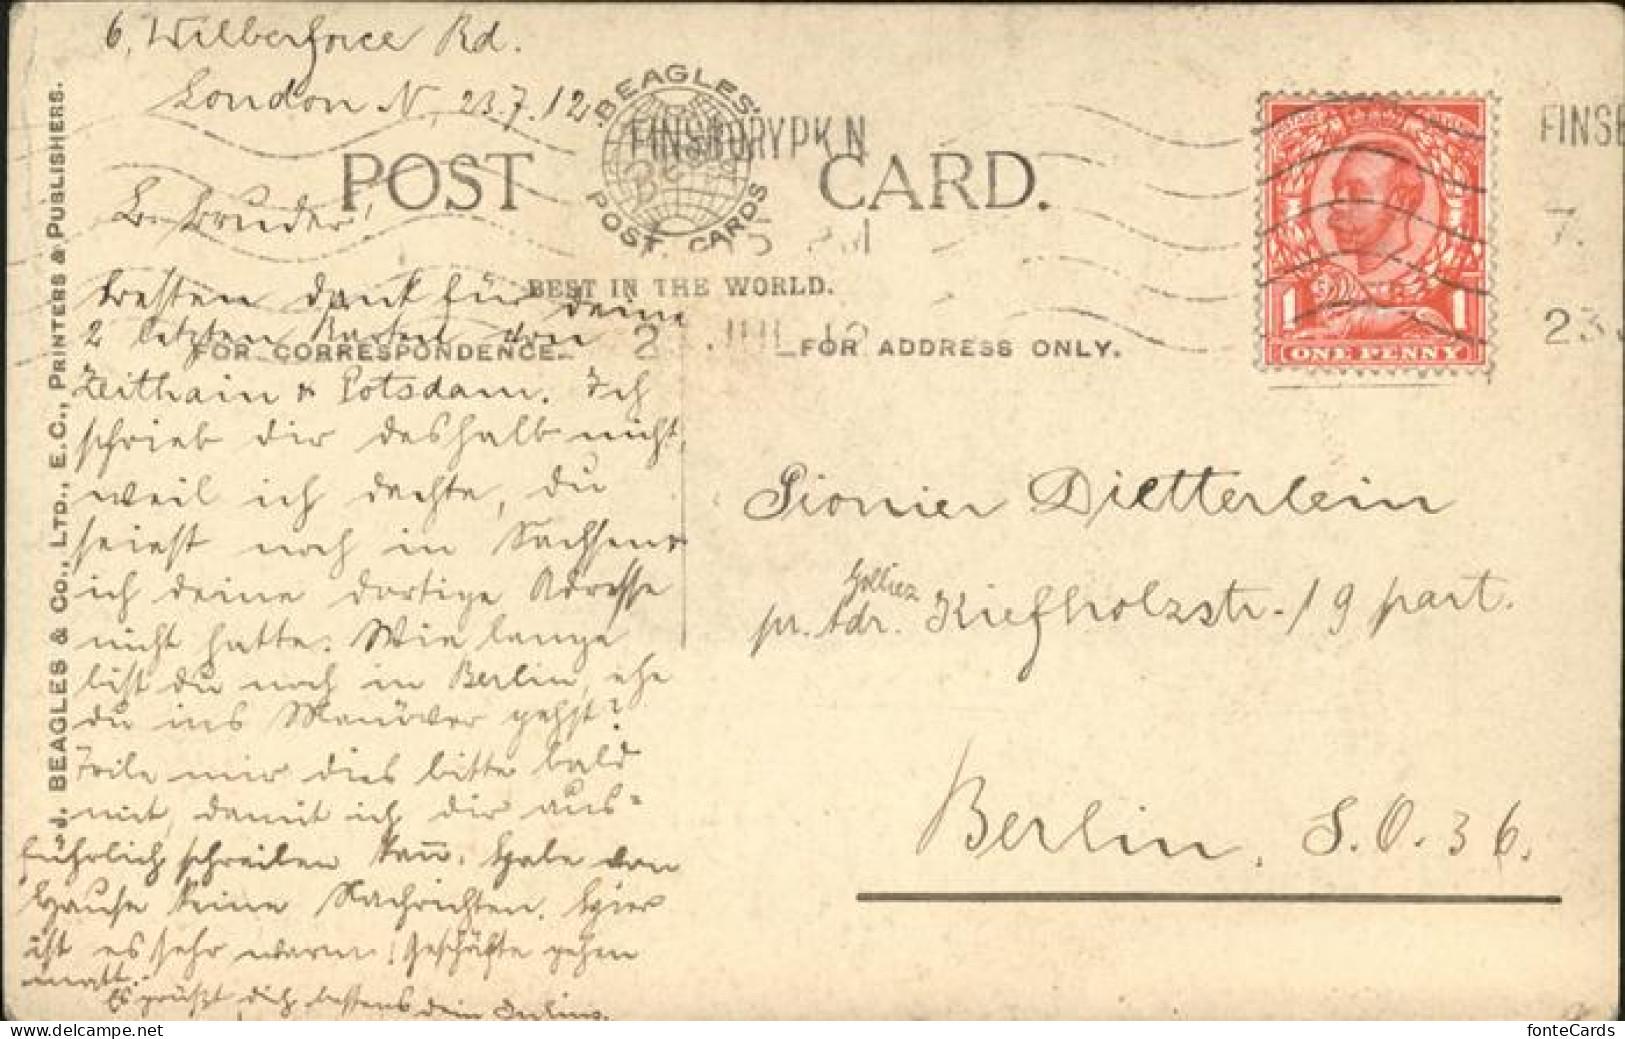 6, Wilberforce Rd.
London N, 23.7.12
BEAGLES'
POST CARDS
FINSBURY PK. N
POST CARD.
L. Bruder!
BEST IN THE WORLD.
Besten Dank für deine
2 letzten Karten von
FOR CORRESPONDENCE.
FOR ADDRESS ONLY.
Zeithain & Potsdam. Ich
schrieb dir deshalb nicht,
weil ich dachte, du
seiest noch in Sachsen &
ich deine dortige Adresse
nicht hatte. Wie lange
bist du noch in Berlin, ehe
du ins Manöver gehst?
Teile mir dies bitte bald
mit, damit ich dir aus-
führlich schreiben kann. Habe von
Hause keine Nachrichten. Hier
ist es sehr warm! Geschäfte gehen
matt.
Es grüßt dich bestens dein
J. BEAGLES & Co., LTD., E.C., PRINTERS & PUBLISHERS.
POSTAGE
1 1
ONE PENNY
FINSB
7.
23
Pionier Dietterlein
pr. Adr. Kiefholzstr. 19 part.
Berlin. S.O. 36.
fonteCards
www.delcampe.net